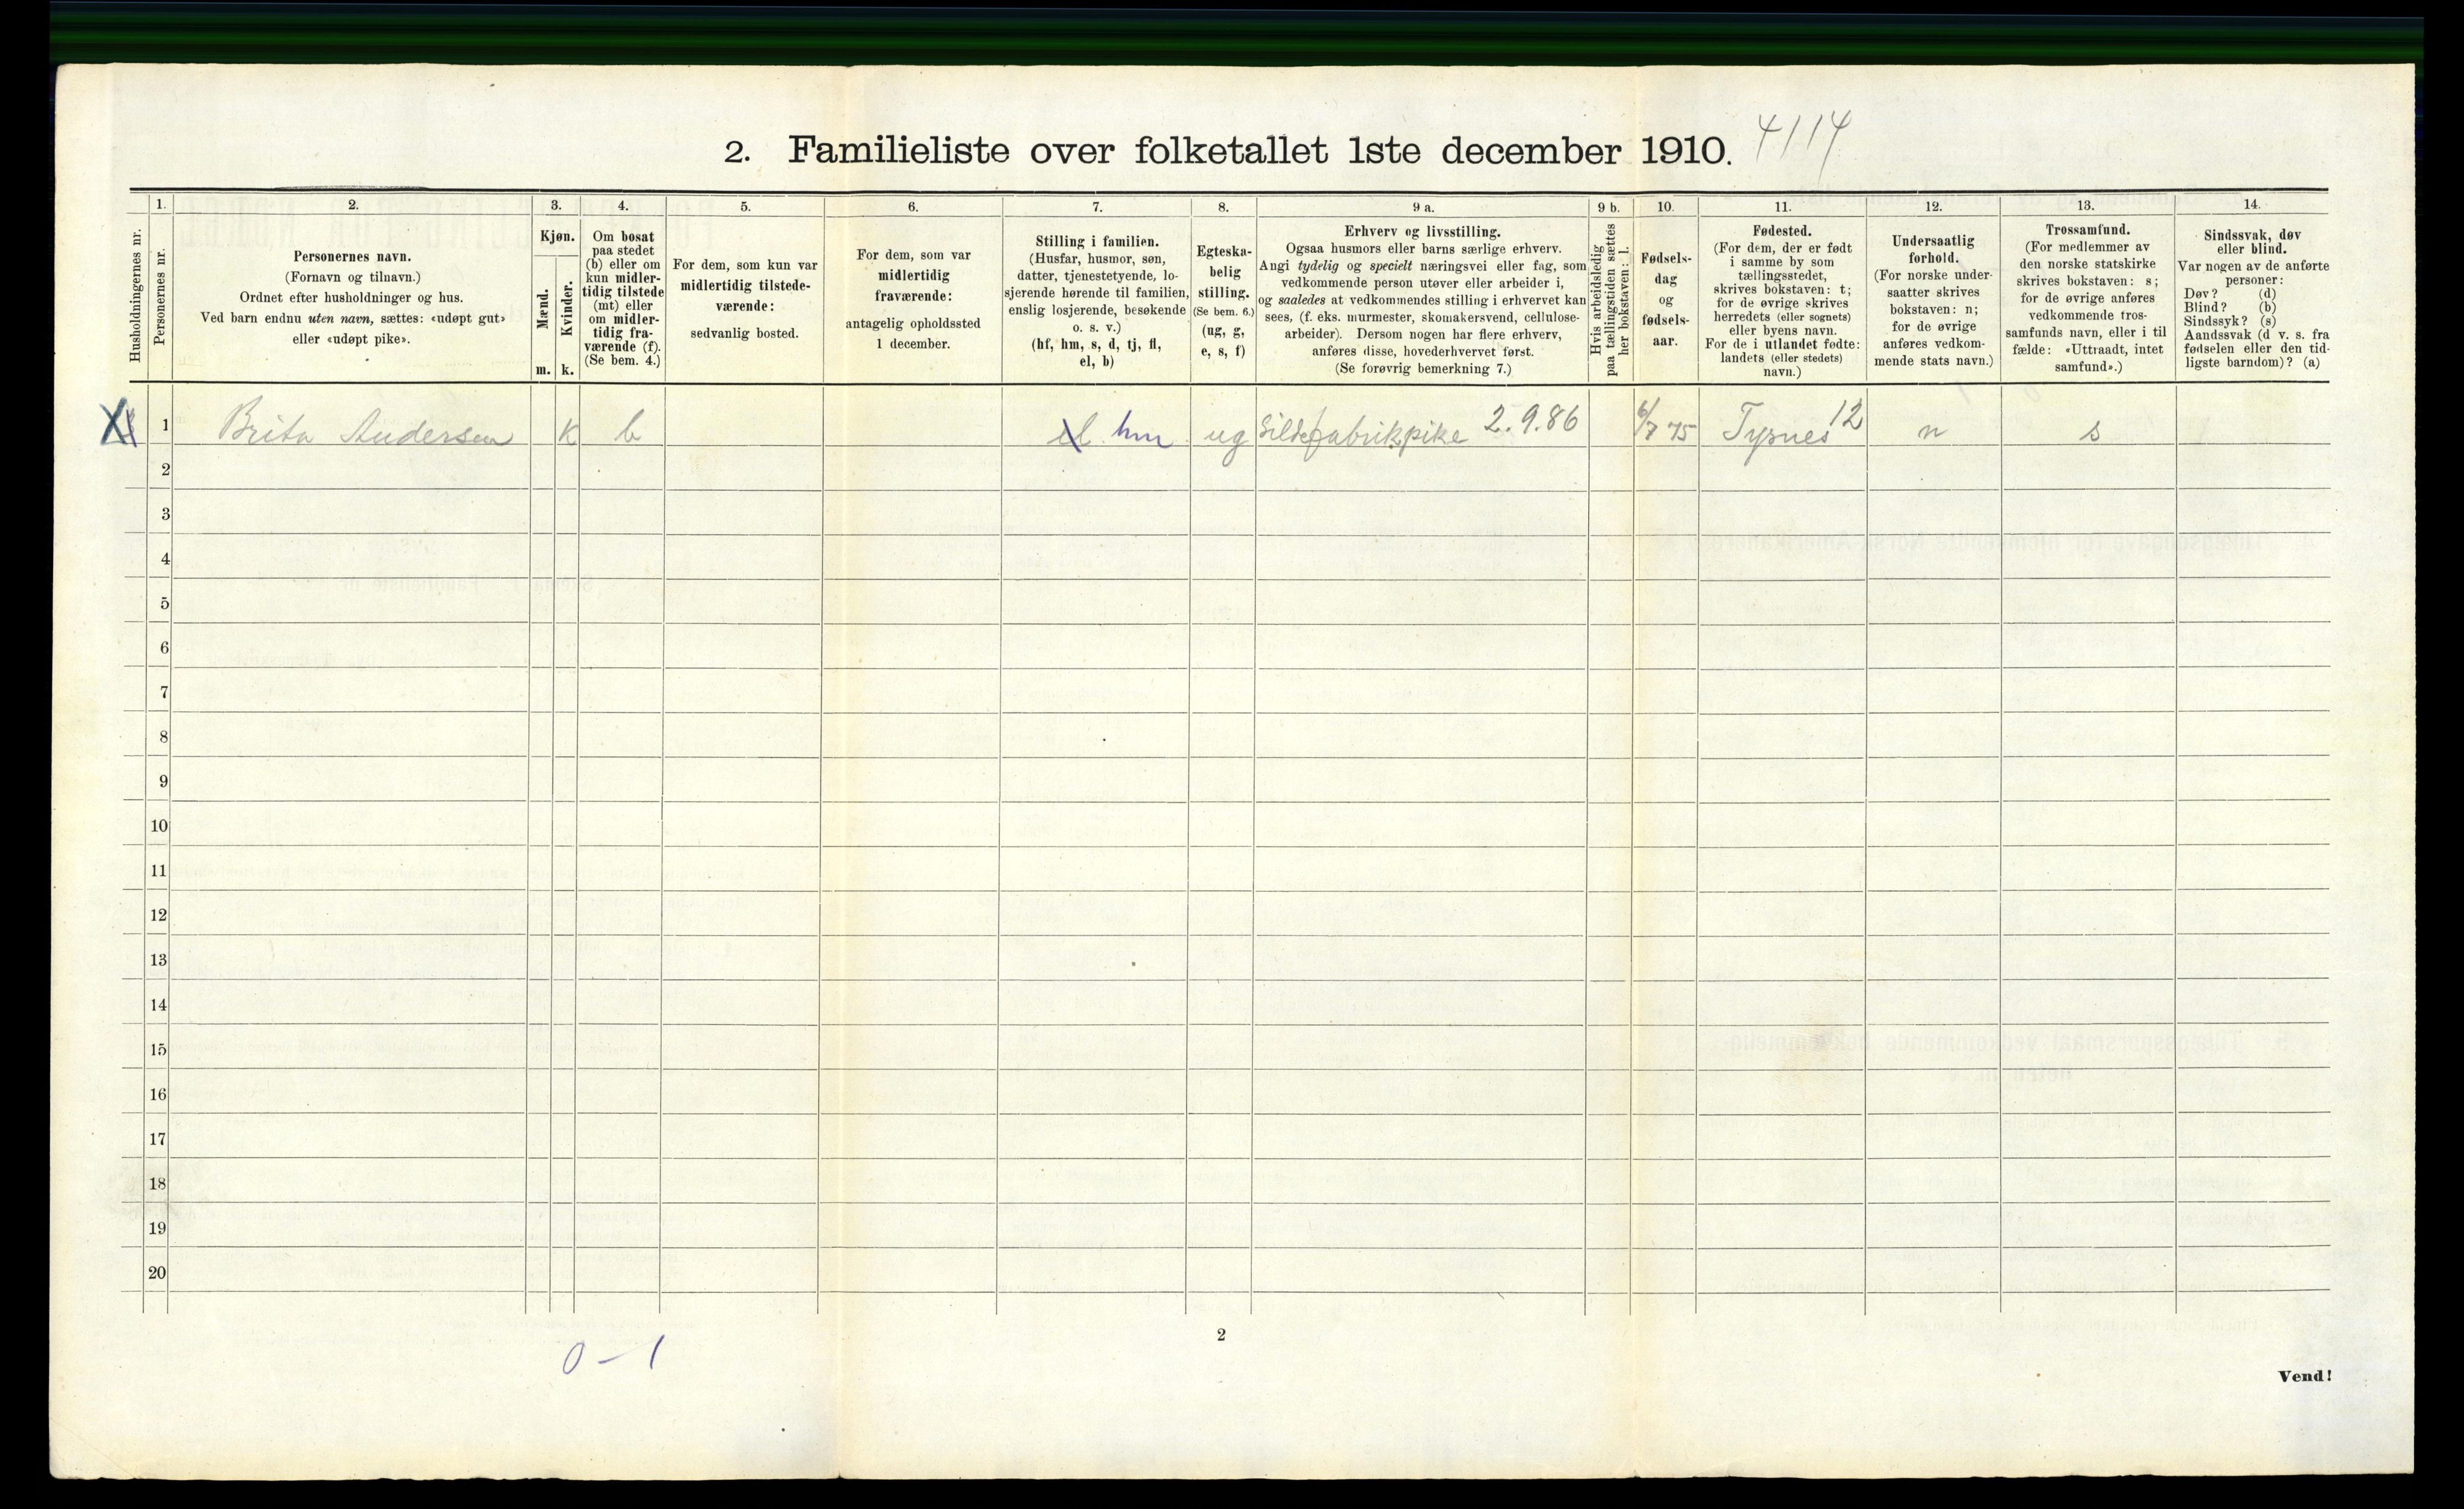 2. Familieliste over folketallet 1ste december 1910.
4114
1.
2.
3.
4.
5.
6.
7.
8.
9 a.
9 b.
10.
11.
12.
13.
14.
Husholdningernes nr.
Personernes nr.
Personernes navn.
(Fornavn og tilnavn.)
Ordnet efter husholdninger og hus.
Ved barn endnu uten navn, sættes: «udøpt gut»
eller «udøpt pike».
Kjøn.
Mænd.
Kvinder.
m.
k.
Om bosat
paa stedet
(b) eller om
kun midler-
tidig tilstede
(mt) eller
om midler-
tidig fra-
værende (f).
(Se bem. 4.)
For dem, som kun var
midlertidig tilstede-
værende:
sedvanlig bosted.
For dem, som var
midlertidig
fraværende:
antagelig opholdssted
1 december.
Stilling i familien.
(Husfar, husmor, søn,
datter, tjenestetyende, lo-
sjerende hørende til familien,
enslig losjerende, besøkende
o. s. v.)
(hf, hm, s, d, tj, fl,
el, b)
Egteska-
belig
stilling.
(Se bem. 6.)
(ug, g,
e, s, f)
Erhverv og livsstilling.
Ogsaa husmors eller barns særlige erhverv.
Angi tydelig og specielt næringsvei eller fag, som
vedkommende person utøver eller arbeider i,
og saaledes at vedkommendes stilling i erhvervet kan
sees, (f. eks. murmester, skomakersvend, cellulose-
arbeider). Dersom nogen har flere erhverv,
anføres disse, hovederhvervet først.
(Se forøvrig bemerkning 7.)
Hvis arbeidsledig
paa tællingstiden sættes
her bokstaven: l.
Fødsels-
dag
og
fødsels-
aar.
Fødested.
(For dem, der er født
i samme by som
tællingsstedet,
skrives bokstaven: t;
for de øvrige skrives
herredets (eller sognets)
eller byens navn.
For de i utlandet fødte:
landets (eller stedets)
navn.)
Undersaatlig
forhold.
(For norske under-
saatter skrives
bokstaven: n;
for de øvrige
anføres vedkom-
mende stats navn.)
Trossamfund.
(For medlemmer av
den norske statskirke
skrives bokstaven: s;
for de øvrige anføres
vedkommende tros-
samfunds navn, eller i til
fælde: «Uttraadt, intet
samfund».)
Sindssvak, døv
eller blind.
Var nogen av de anførte
personer:
Døv? (d)
Blind? (b)
Sindssyk? (s)
Aandssvak (d v. s. fra
fødselen eller den tid-
ligste barndom)? (a)
1 Brita Andersen k b el hm ug Sildefabrikpike 2.9.86 6/7 75 Tysnes 12 n s
2
3
4
5
6
7
8
9
10
11
12
13
14
15
16
17
18
19
20
0 - 1
2
Vend!